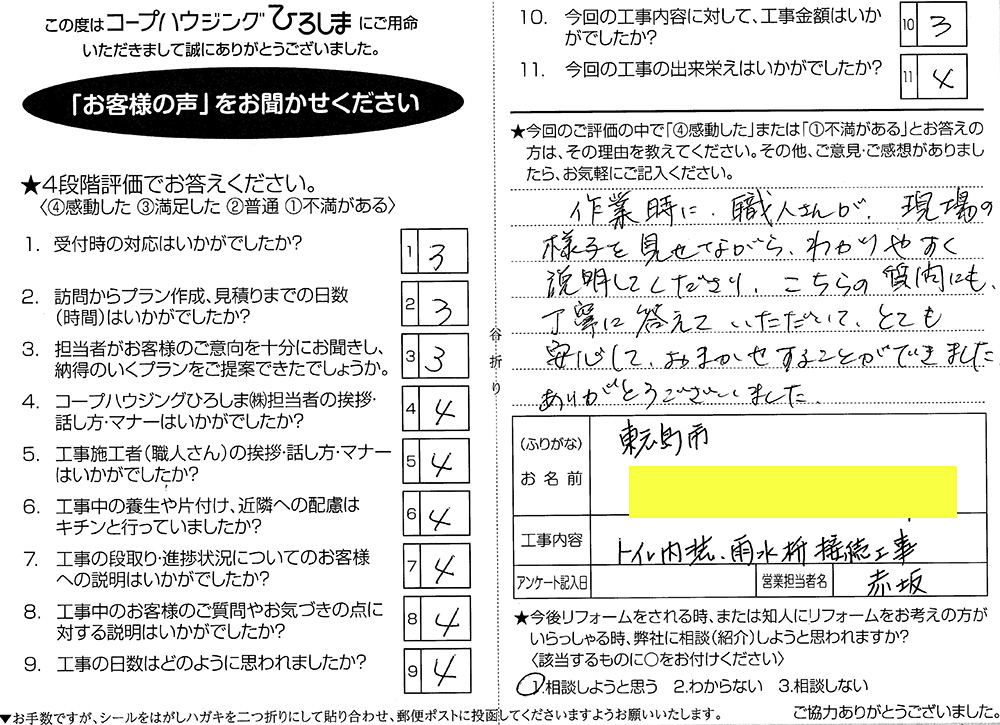 この度はコープハウジングひろしまにご用命
いただきまして誠にありがとうございました。
「お客様の声」をお聞かせください
★4段階評価でお答えください。
〈④感動した ③満足した ②普通 ①不満がある〉
1. 受付時の対応はいかがでしたか? 1 3
2. 訪問からプラン作成、見積りまでの日数
(時間)はいかがでしたか? 2 3
3. 担当者がお客様のご意向を十分にお聞きし、
納得のいくプランをご提案できたでしょうか。 3 3
4. コープハウジングひろしま㈱担当者の挨拶・
話し方・マナーはいかがでしたか? 4 4
5. 工事施工者(職人さん)の挨拶・話し方・マナー
はいかがでしたか? 5 4
6. 工事中の養生や片付け、近隣への配慮は
キチンと行っていましたか? 6 4
7. 工事の段取り・進捗状況についてのお客様
への説明はいかがでしたか? 7 4
8. 工事中のお客様のご質問やお気づきの点に
対する説明はいかがでしたか? 8 4
9. 工事の日数はどのように思われましたか? 9 4
▼お手数ですが、シールをはがしハガキを二つ折りにして貼り合わせ、郵便ポストに投函してくださいますようお願いいたします。
谷折り
10. 今回の工事内容に対して、工事金額はいか
がでしたか? 10 3
11. 今回の工事の出来栄えはいかがでしたか? 11 4
★今回のご評価の中で「④感動した」または「①不満がある」とお答えの
方は、その理由を教えてください。その他、ご意見・ご感想がありまし
たら、お気軽にご記入ください。
作業時に、職人さんが、現場の
様子を見せてながら、わかりやすく
説明してくださり、こちらの質問にも、
丁寧に答えていただいて、とても
安心して、おまかせすることができました
ありがとうございました。
(ふりがな)
お名前
東広島市
工事内容 トイレ内装、雨水桝接続工事
アンケート記入日 営業担当者名 赤坂
★今後リフォームをされる時、または知人にリフォームをお考えの方が
いらっしゃる時、弊社に相談(紹介)しようと思われますか?
〈該当するものに○をお付けください〉
1.相談しようと思う 2.わからない 3.相談しない
ご協力ありがとうございました。